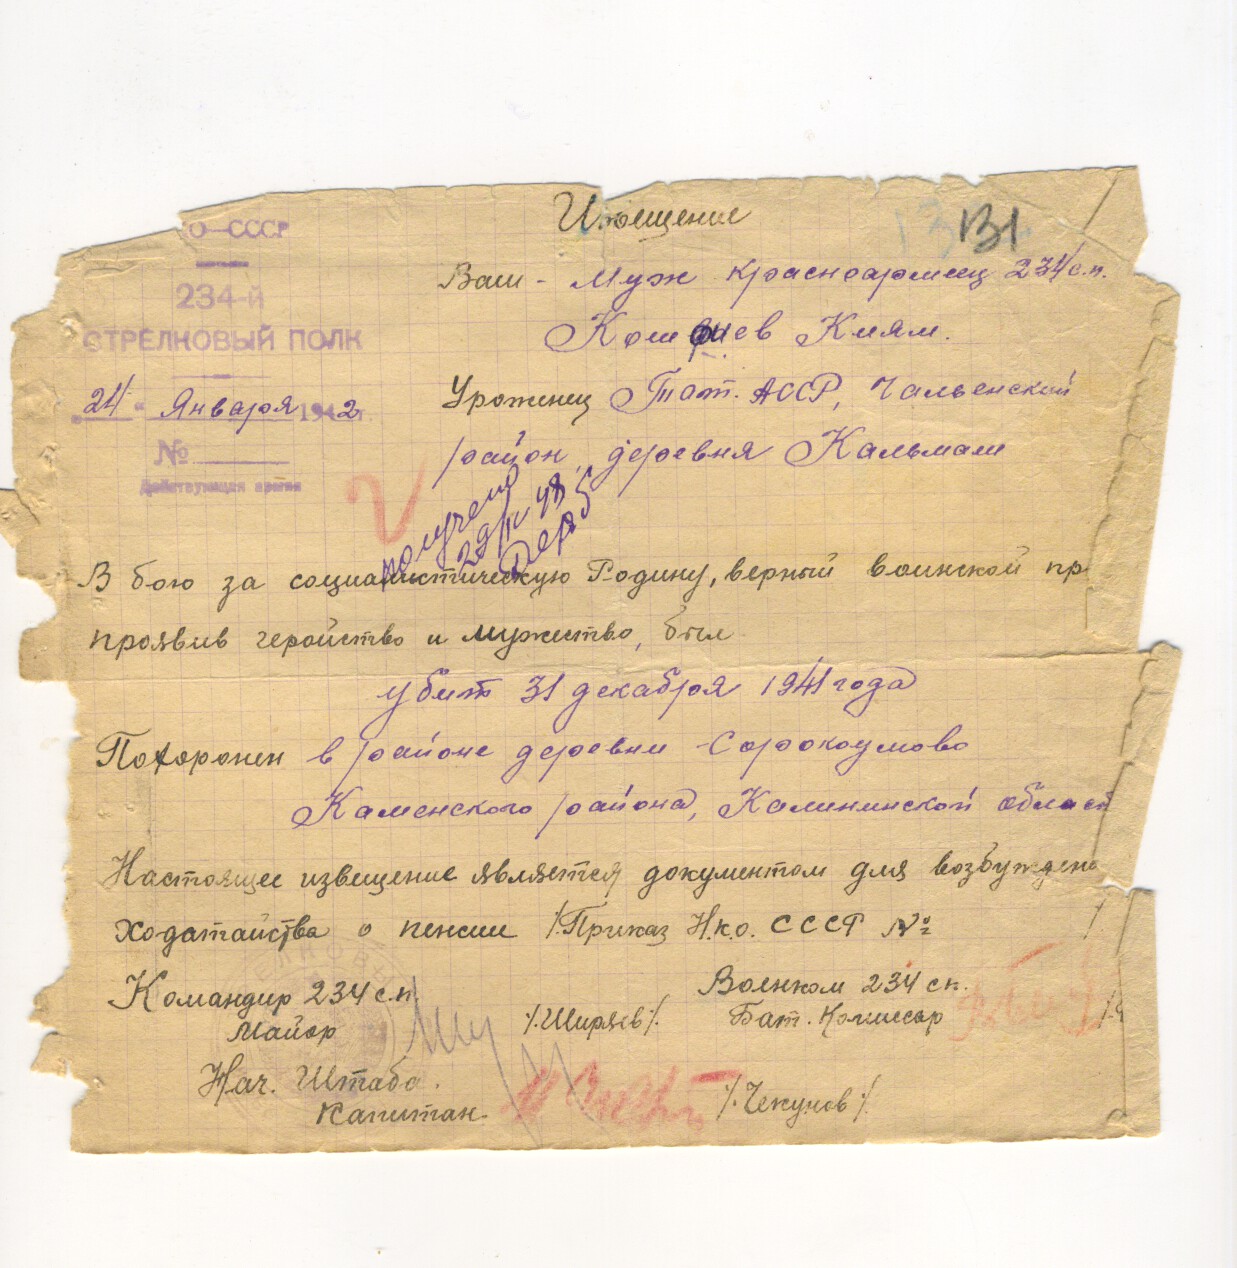 О—СССР
234-й
СТРЕЛКОВЫЙ ПОЛК
"24" Января 1942 г.
№
Действующая армия
Извещение
131
Ваш - муж красноармеец 234 с.п.
Киям.
Уроженец Тат. АССР, Чальенской
район, деревня Кальмаш
получено
29/IV 48
В бою за социалистическую Родину, верный воинской пр
проявив геройство и мужество, был
убит 31 декабря 1941 года
Похоронен в районе деревни Сорокоумово
Каменского района, Калининской област
Настоящее извещение является документом для возбужден
ходатайства о пенсии /Приказ Н.к.о. СССР № /
Командир 234 с.п. Военком 234 сп.
Майор /Ширяев/ Бат. Комиссар
Нач. Штаба.
Капитан. /Чекунов/